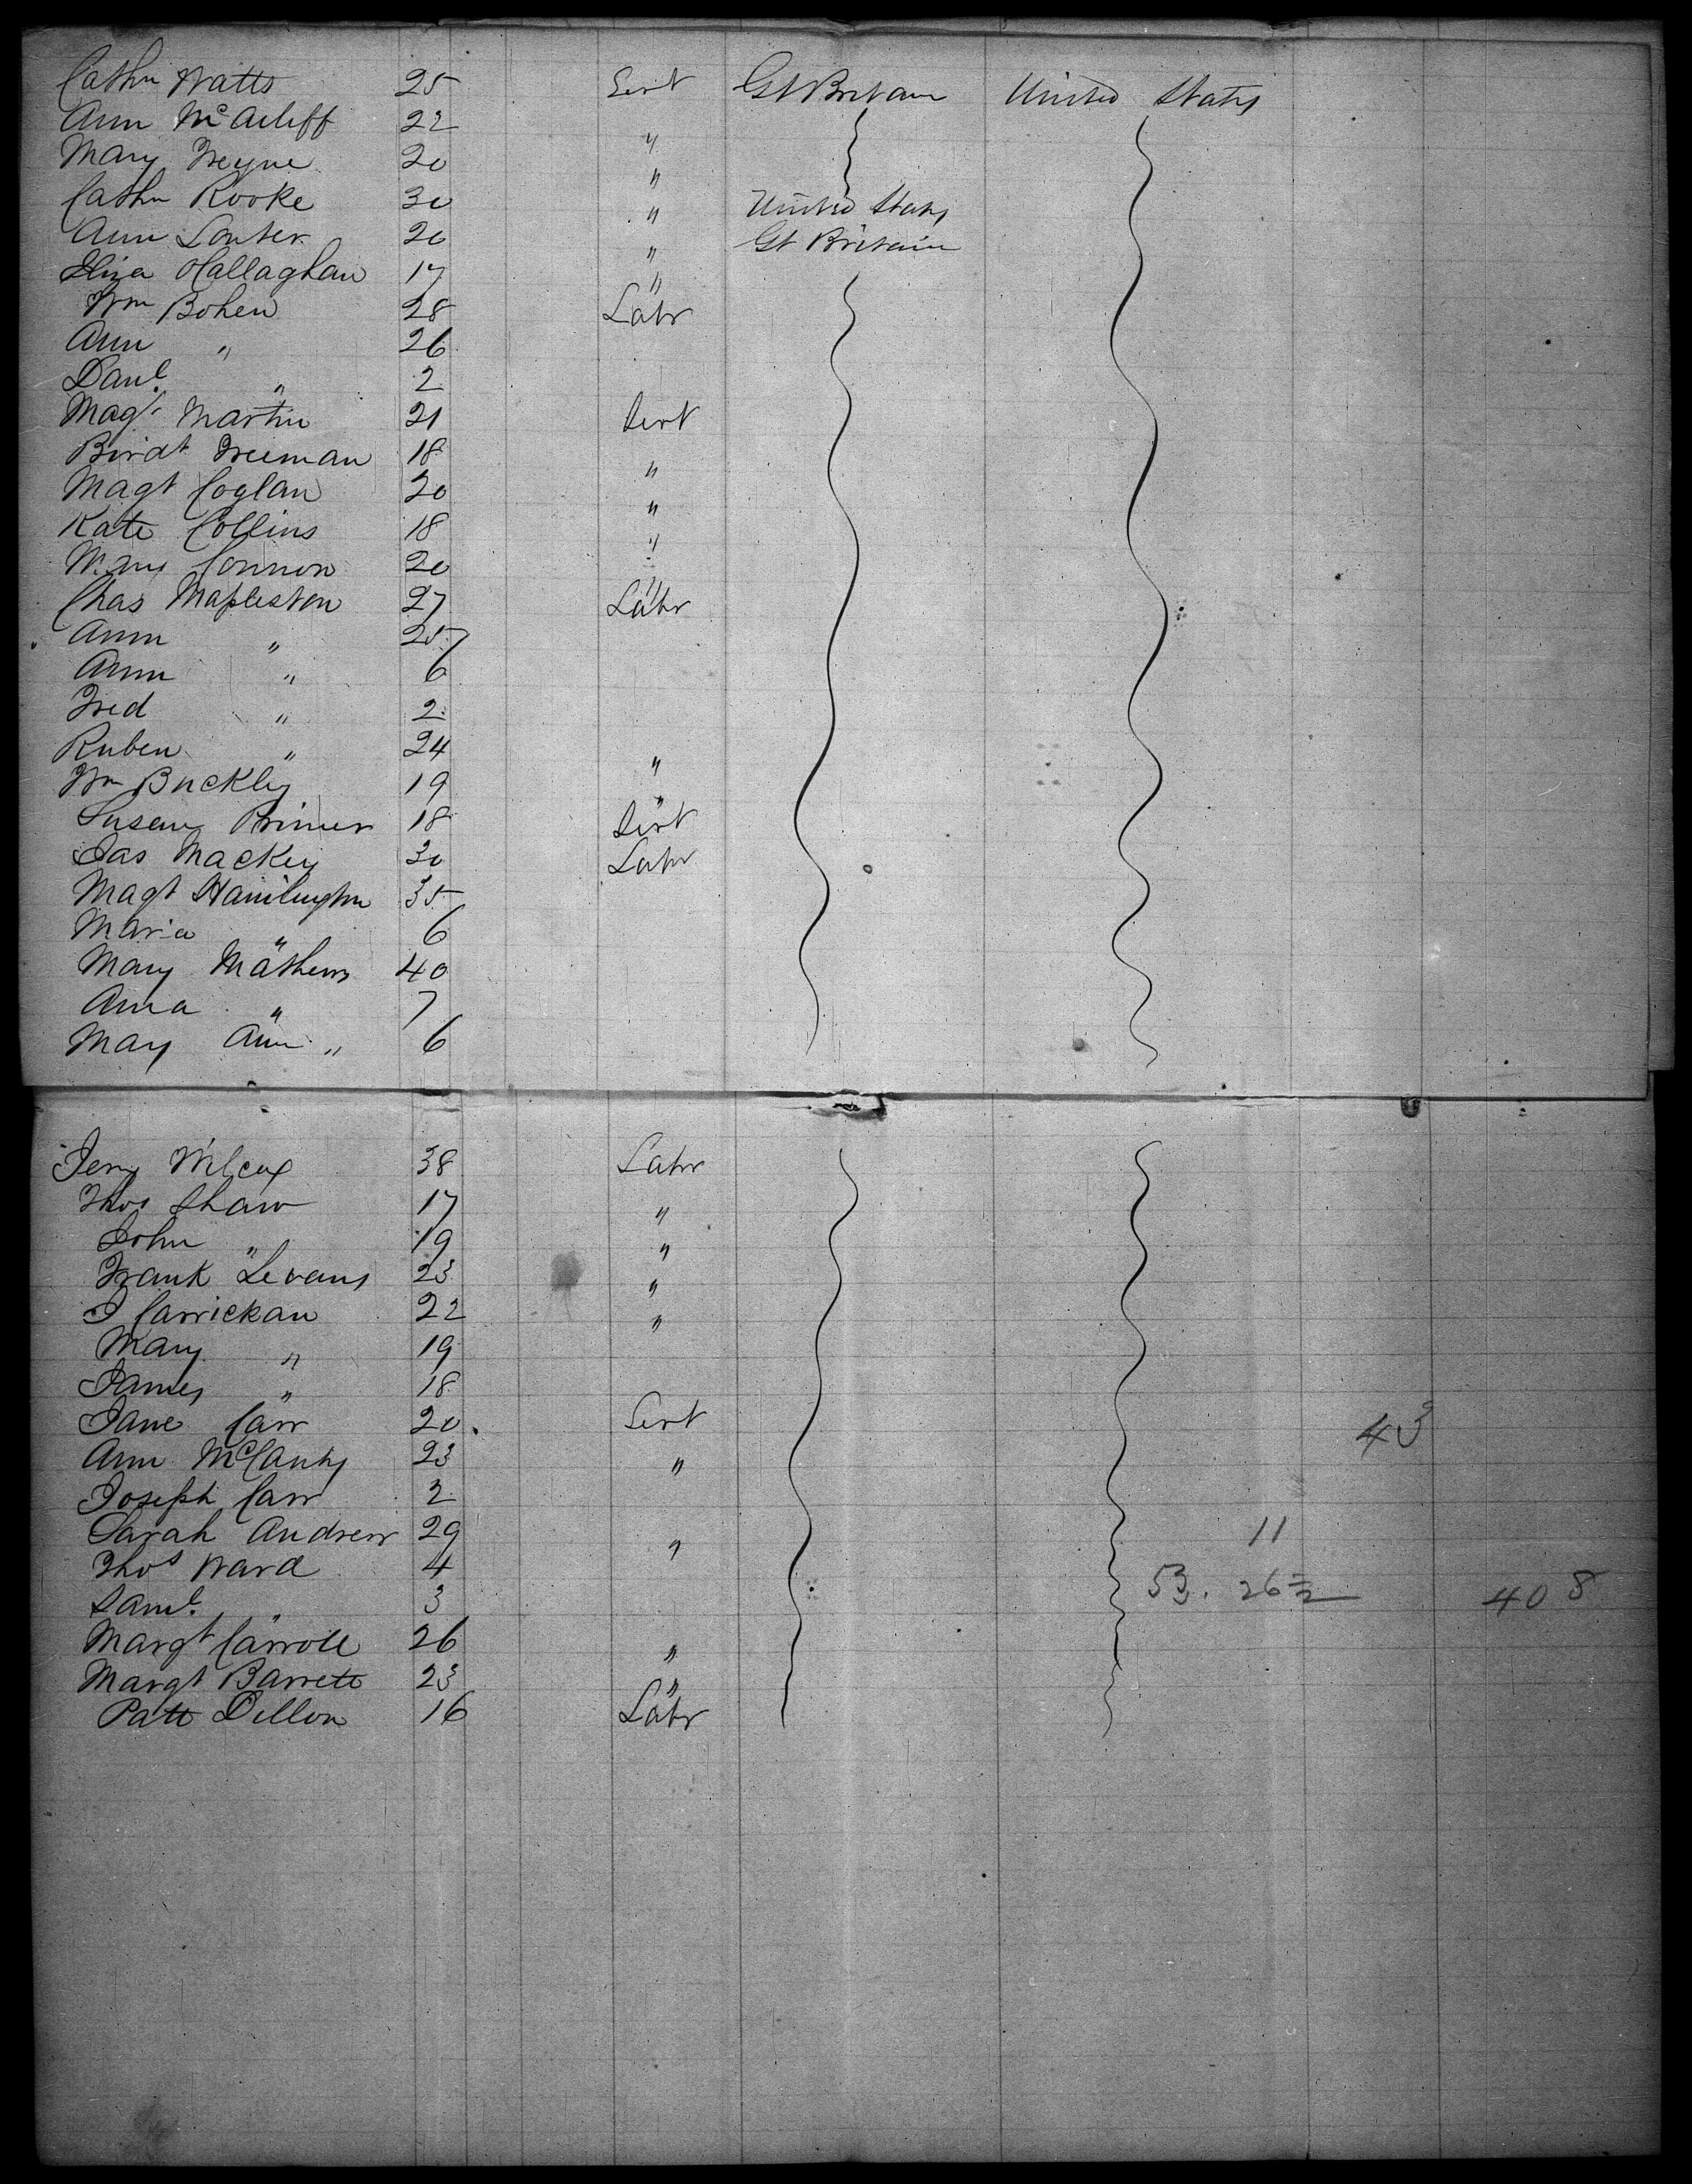 Cathn Watts 25 Servt Gt Britain United States
Ann McAuliff 22 "
Mary Freyne 20 "
Cathn Rooke 30 " United States
Ann Souter 20 " Gt Britain
Eliza OCallaghan 17 "
Wm Bohen 28 Labr
Ann " 26
Danl. " 2
Magt Martin 21 Servt
Birdt Freeman 18 "
Magt Coglan 20 "
Kate Collins 18 "
Mary Connon 20 "
Chas Mapleston 27 Labr
Ann " 25
Ann " 6
Fred " 2
Ruben " 24 "
Wm Buckley 19 "
Susan Primer 18 Servt
Jas Mackey 30 Labr
Magt 35
Maria " 6
Mary Mathews 40
Anna " 7
Mary Ann " 6
Jerry Wilcox 38 Labr
Thos Shaw 17 "
John " 19 "
Frank Levans 23 "
J Carrickan 22 "
Mary " 19
James " 18
Jane Carr 20 Servt 43
Ann McCanty 23 "
Joseph Carr 2
Sarah Andrew 29 " 11
Thos Ward 4
Saml. " 3 53. 26 408
Margt Carroll 26 "
Margt Barrett 23 "
Patt Dillon 16 Labr